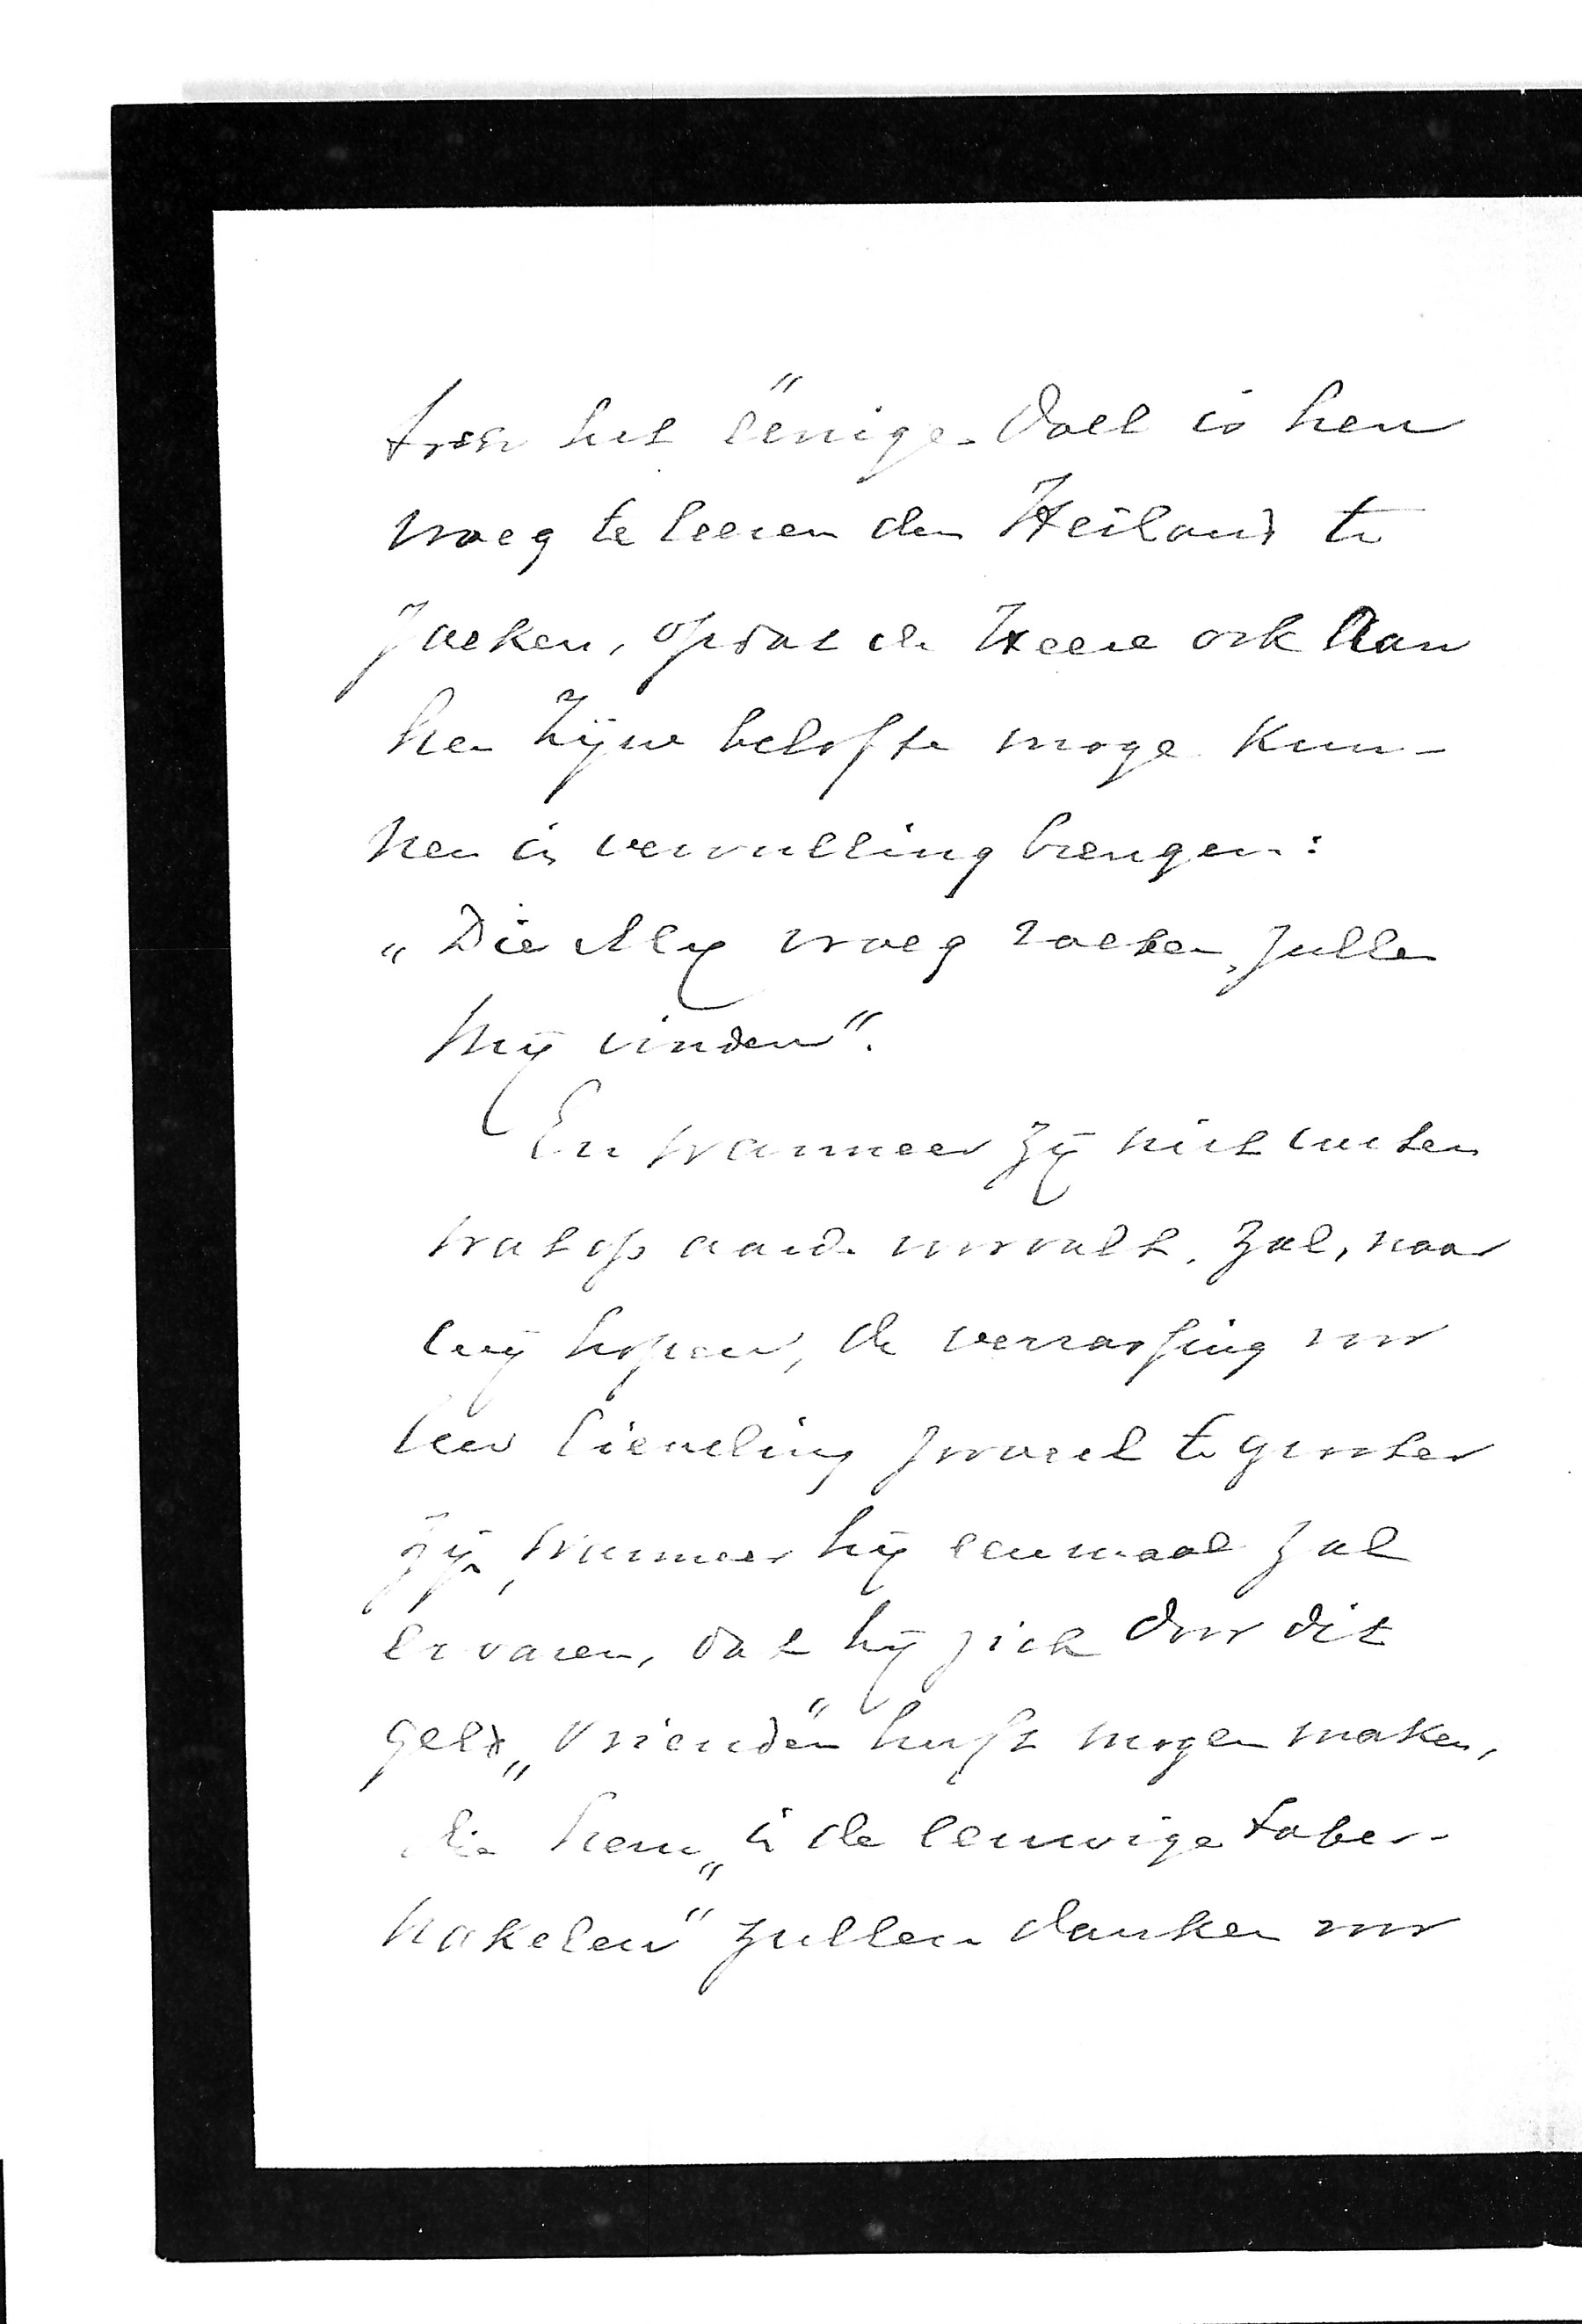 het éénige doel is hen
vroeg te leeren den Heiland te
zoeken, opdat de Heere ook aan
hen Zijne belofte moge kun-
nen in vervulling brengen:
„Die Mij vroeg zoeken, zullen
Mij vinden".
En wanneer zij niet weten
wat op aarde voorvalt, zal, naar
wij hopen, de verrassing voor
hun lieveling zooveel te grooter
zijn, wanneer hij eenmaal zal
ervaren, dat hij zich door dit
geld „vrienden" heeft mogen maken,
die hem „in de eeuwige taber-
nakelen" zullen danken voor